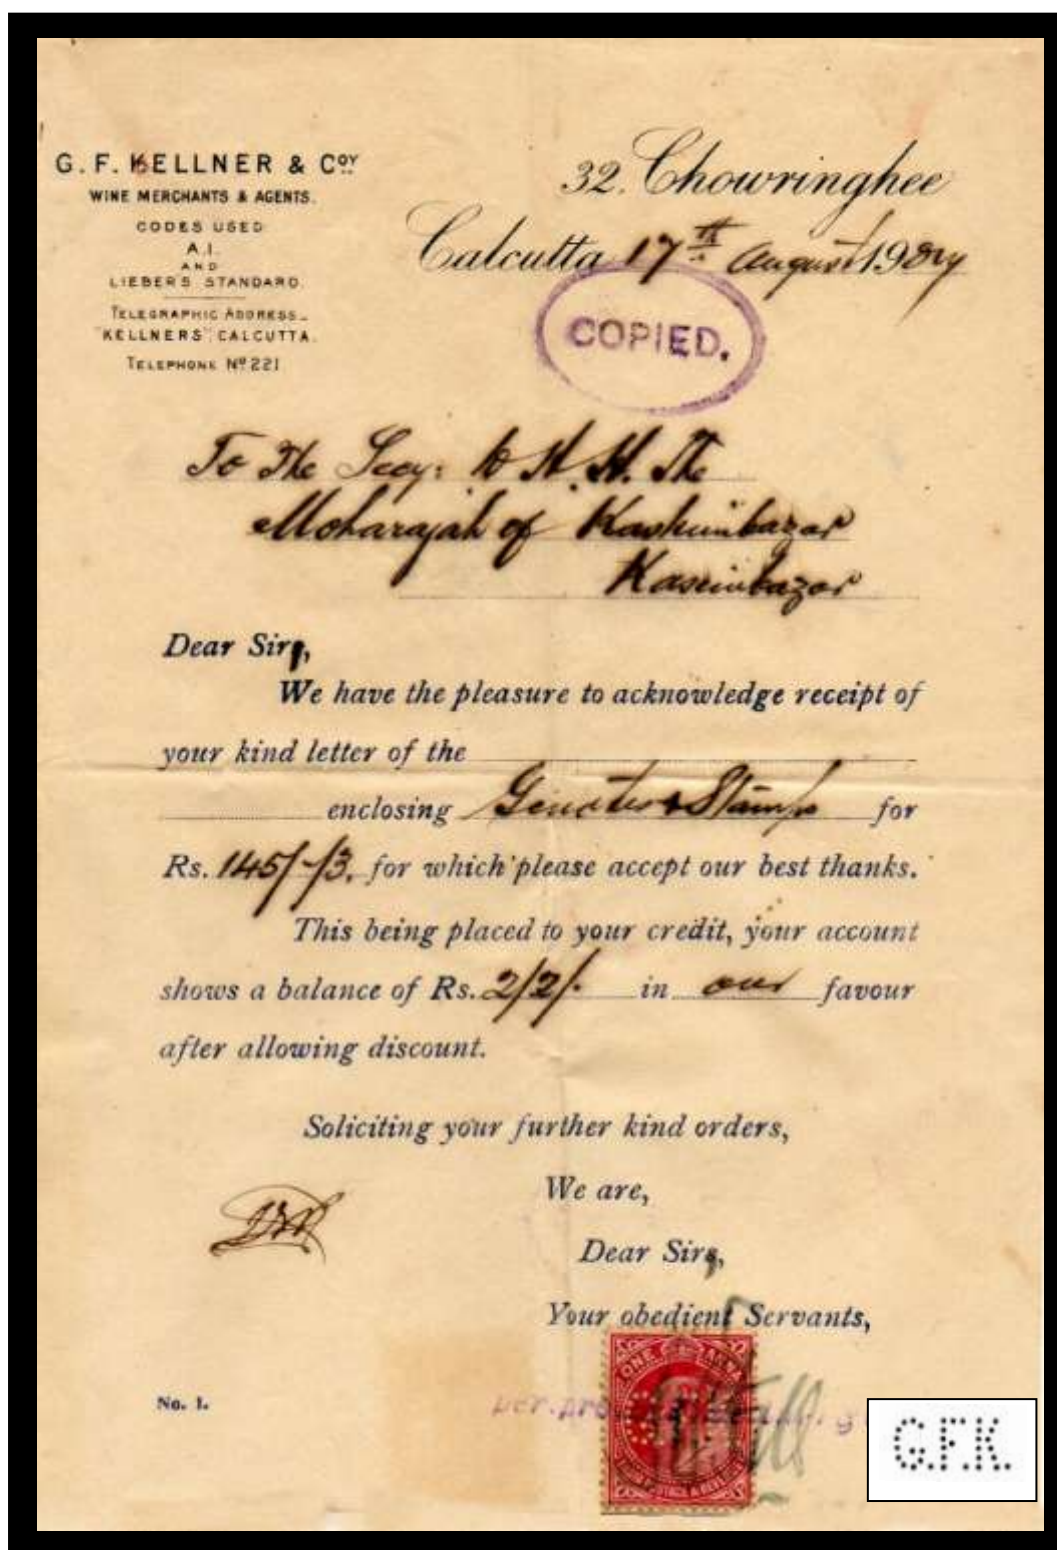 G. F. KELLNER & COY
WINE MERCHANTS & AGENTS.
CODES USED
A.I.
AND
LIEBERS STANDARD.
TELEGRAPHIC ADDRESS_
"KELLNERS", CALCUTTA.
TELEPHONE No 221
32. Chowringhee
Calcutta 17th August 190
COPIED.
To The Secy: to H. H. The
Moharajah of Kashimbazar
Kasimbazar
Dear Sir,
We have the pleasure to acknowledge receipt of
your kind letter of the
enclosing Stamps for
Rs. 145/-/3. for which please accept our best thanks.
This being placed to your credit, your account
shows a balance of Rs. 2/2/- in our favour
after allowing discount.
Soliciting your further kind orders,
We are,
Dear Sir,
Your obedient Servants,
No. 1.
per.pro
ONE ANNA
G.F.K.